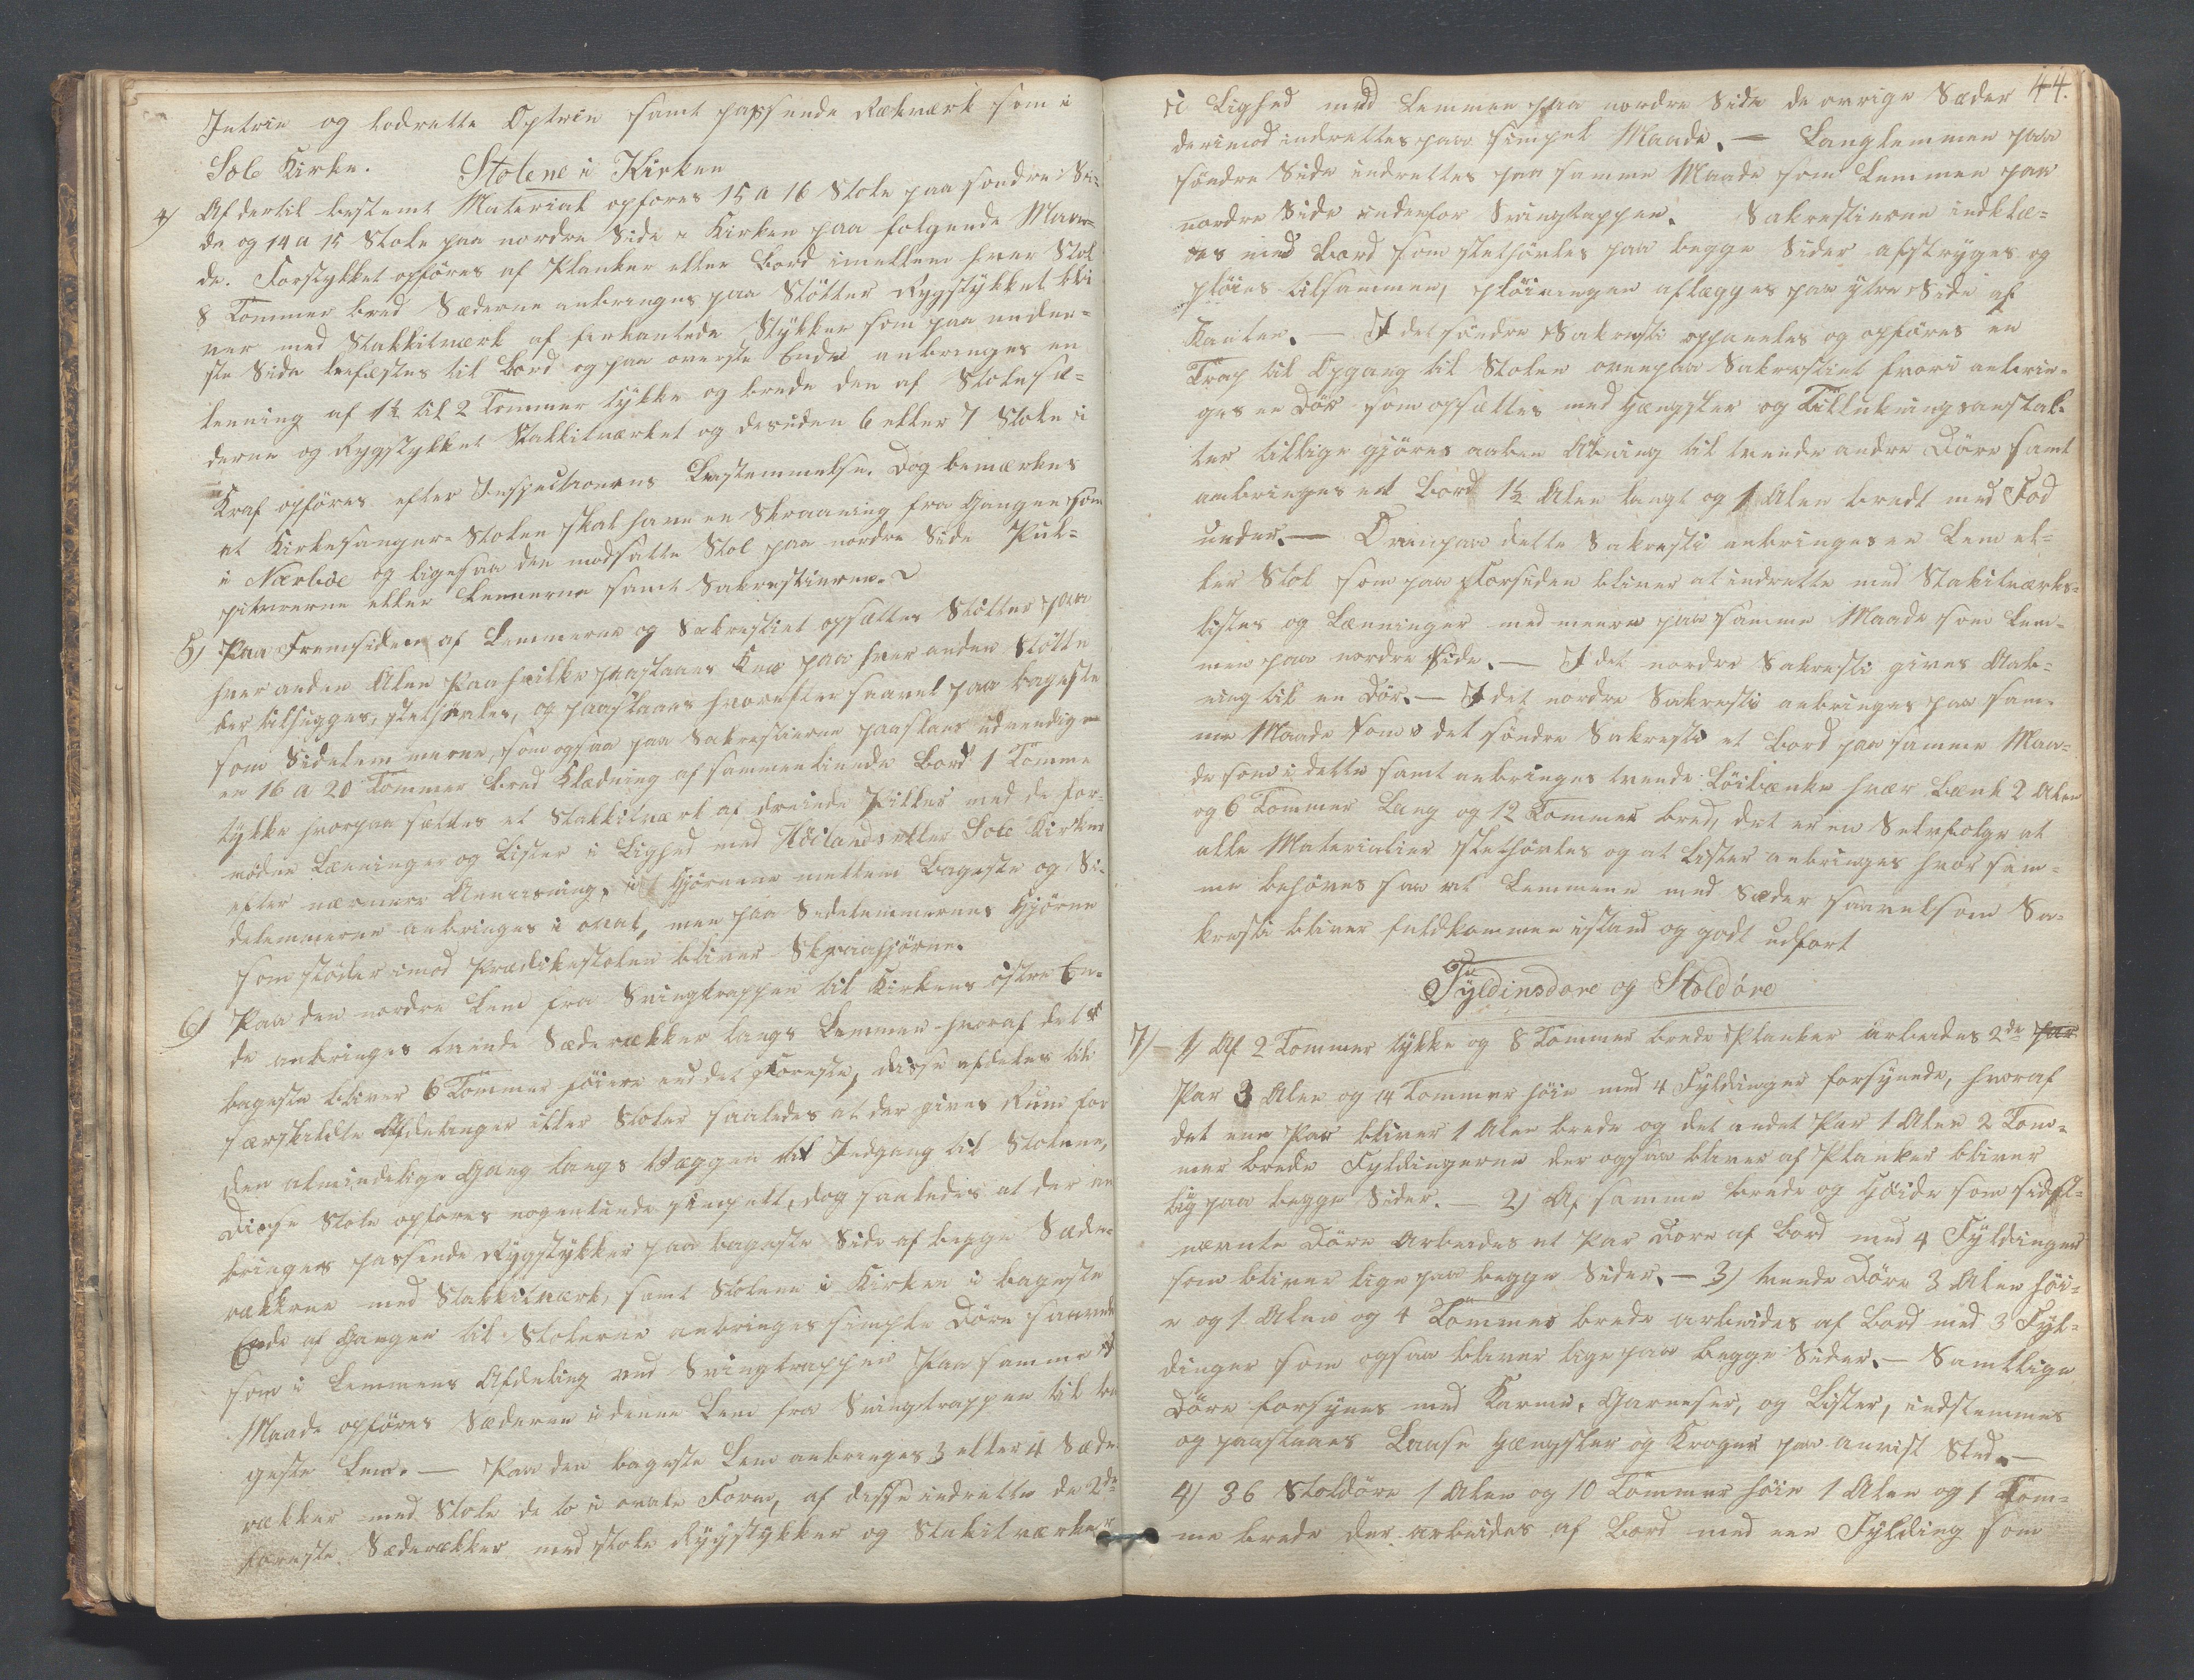 Intrin og lodrette Optrin samt passende Rækværk som i
Sole Kirke. Stolene i Kirken
4) Af dertil bestemt Material opføres 15 a 16 Stole paa søndre Si-
de og 14 a 15 Stole paa nordre Side i Kirken paa følgende Maa-
de. Forstykket opføres af Planker eller Bord imellem hver Stol
8 Tommer bred Sæderne anbringes paa Støtter Rygstykket bli
ver med Stakkitværk af firkantede Stykker som paa neder-
ste Side befæstes til Bord og paa øverste Ende anbringes en
lenning af 1½ til 2 Tommer tykke og brede den af Stolesæ-
derne og Rygstykket Stakkitværket og desuden 6 eller 7 Stole i
Kraf opføres efter Inspectionens Bestemmelse. Dog bemærkes
at Kirkesanger Stolen skal have en Skraaning fra Gangen som
i Nærbøe og ligesaa den modsatte Stol paa nordre Side Pul-
piturerne eller Lemmerne samt Sakrestierne.
5) Paa Fremsiden af Lemmerne og Sakrestiet opsættes Støtter paa
hver anden Alen Paa hvilke paaslaaes Knæ paa hver anden Støtte
der tilhugges, slethøvles, og paaslaaes hvorefter saavel paa bageste
som Sidelemmerne, som ogsaa paa Sakrestierne paaslaaes udvendig
en 16 a 20 Tommer bred Klædning af sammenlimede Bord 1 Tomme
tykke hvorpaa sættes et Stakkitværk af dreiede Piller med de for-
nødne Lænninger og Lister i Lighed med Høilands eller Sole Kirker
efter nærmere Anvisning, i Hjørnene mellem bageste og Si-
delemmerne anbringes i oval, men paa Sidelemmernes Hjørne
som støder imod Prædikestolen bliver Skraahjørne.
6) Paa den nordre Lem fra Svingtrappen til Kirkens østre En-
de anbringes tvende Sæderækker langs Lemmen hvoraf det
bageste bliver 6 Tommer høiere end det forreste, disse afdeles til
særskildte Afdelinger eller Stoler saaledes at der gives Rum for
den almindelige Gang langs Væggen til Indgang til Stolene,
Disse Stole opføres nogenlunde simpelt, dog saaledes at der an
bringes passende Rygstykker paa bageste Side af begge Sæde-
rækkerne med Stakkitværk, samt Stolene i Kirken i bageste
Ende af Gangen til Stolerne anbringes simple Døre saavel
som i Lemmens Afdeling ved Svingtrappen Paa samme
Maade opføres Sæderne i denne Lem fra Svingtrappen til ba
geste Lem. — Paa den bageste Lem anbringes 3 eller 4 Sæde
rækker med Stole de to i ovale Form, af disse indrettes de 2de
forreste Sæderækker med stole Rygstykker og Stakitværker
44.
i Lighed med Lemmen paa nordre Side de øvrige Sæder
derimod indrettes paa simpel Maade. — Langlemmen paa
søndre Side indrettes paa samme Maade som Lemmen paa
nordre Side indenfor Svingtappen. Sakrestierne indklæ-
des med Bord som slethøvles paa begge Sider afstryges og
pløies tilsammen, pløiningen aflægges paa ytre Side af
Kanten. — I det søndre Sakresti oppaneles og opføres en
Trap til Opgang til Stolen ovenpaa Sakrestiet hvori anbrin-
ges en Dør som opsættes med Hængsler og Tillukningsanstal-
ter tillige gjøres aaben Abning til tvende andre Døre samt
anbringes et Bord 1½ Alen langt og 1 Alen bredt med Fod
under. — Ovenpaa dette Sakresti anbringes en Lem el-
ler Stol som paa Forsiden bliver at indrette med Stakitværks-
listes og Lænninger med meere paa samme Maade som Lem-
men paa nordre Side. — I det nordre Sakresti gives Aab-
ning til en Dør. — I det nordre Sakresti anbringes paa sam-
me Maade som i det søndre Sakresti et Bord paa samme Maa-
de som i dette samt anbringes tvende Løsbænke hvær Bænk 2 Alen
og 6 Tommer Lang og 12 Tommer bred, det er en Selvfølge at
alle Materialier slethøvles og at Lister anbringes hvor sam-
me behøves saa at Lemmene med Sæder saavelsom Sa-
kresti bliver fuldkommen istand og godt udført
Fyldinsdøre og Stoldøre
7) 1) Af 2 Tommer tykke og 8 Tommer brede Planker arbeides 2de par
Par 3 Alen og 14 Tommer høie med 4 Fyldinger forsynede, hvoraf
det ene Par bliver 1 Alen brede og det andet Par 1 Alen 2 Tom-
mer brede Fyldingerne der ogsaa bliver af Planker bliver
lig paa begge Sider. — 2) Af samme brede og Høide som sidst-
nævnte Døre Arbeides et Par Døre af Bord med 4 Fyldinger
som bliver lige paa begge Sider. — 3) tvende Døre 3 Alen høi-
e og 1 Alen og 4 Tommer brede arbeides af Bord med 3 Fyl-
dinger som ogsaa bliver lige paa begge Sider. — Samtlige
Døre forsynes med Karme, Garneser, og Lister, indstemmes
og paaslaaes Laase Hængsler og Kroger paa anvist Sted. —
4) 36 Stoldøre 1 Alen og 10 Tommer høie 1 Alen og 1 Tom-
me brede der arbeides af Bord med een Fylding som